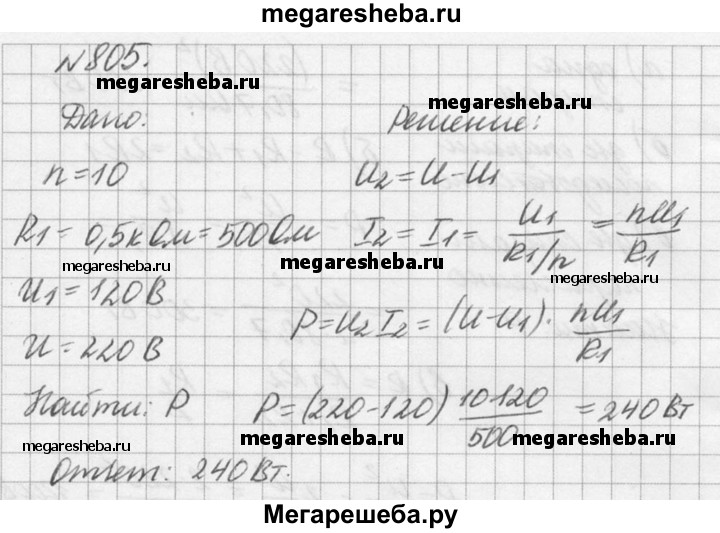 megaresheba.ru
№805.
megaresheba.ru
megaresheba.ru
Дано: Решение:
n=10 U2=U-U1
R1= 0,5кОм=500Ом I2=I1= U1/(R1/n) = nU1/R1
megaresheba.ru megaresheba.ru megaresheba.ru
U1=120В
P=U2I2=(U-U1)· nU1/R1
U=220В
Найти: P P=(220-120) 10·120/500 =240Вт
megaresheba.ru megaresheba.ru megaresheba.ru
Ответ: 240Вт.
Мегарешеба.ру